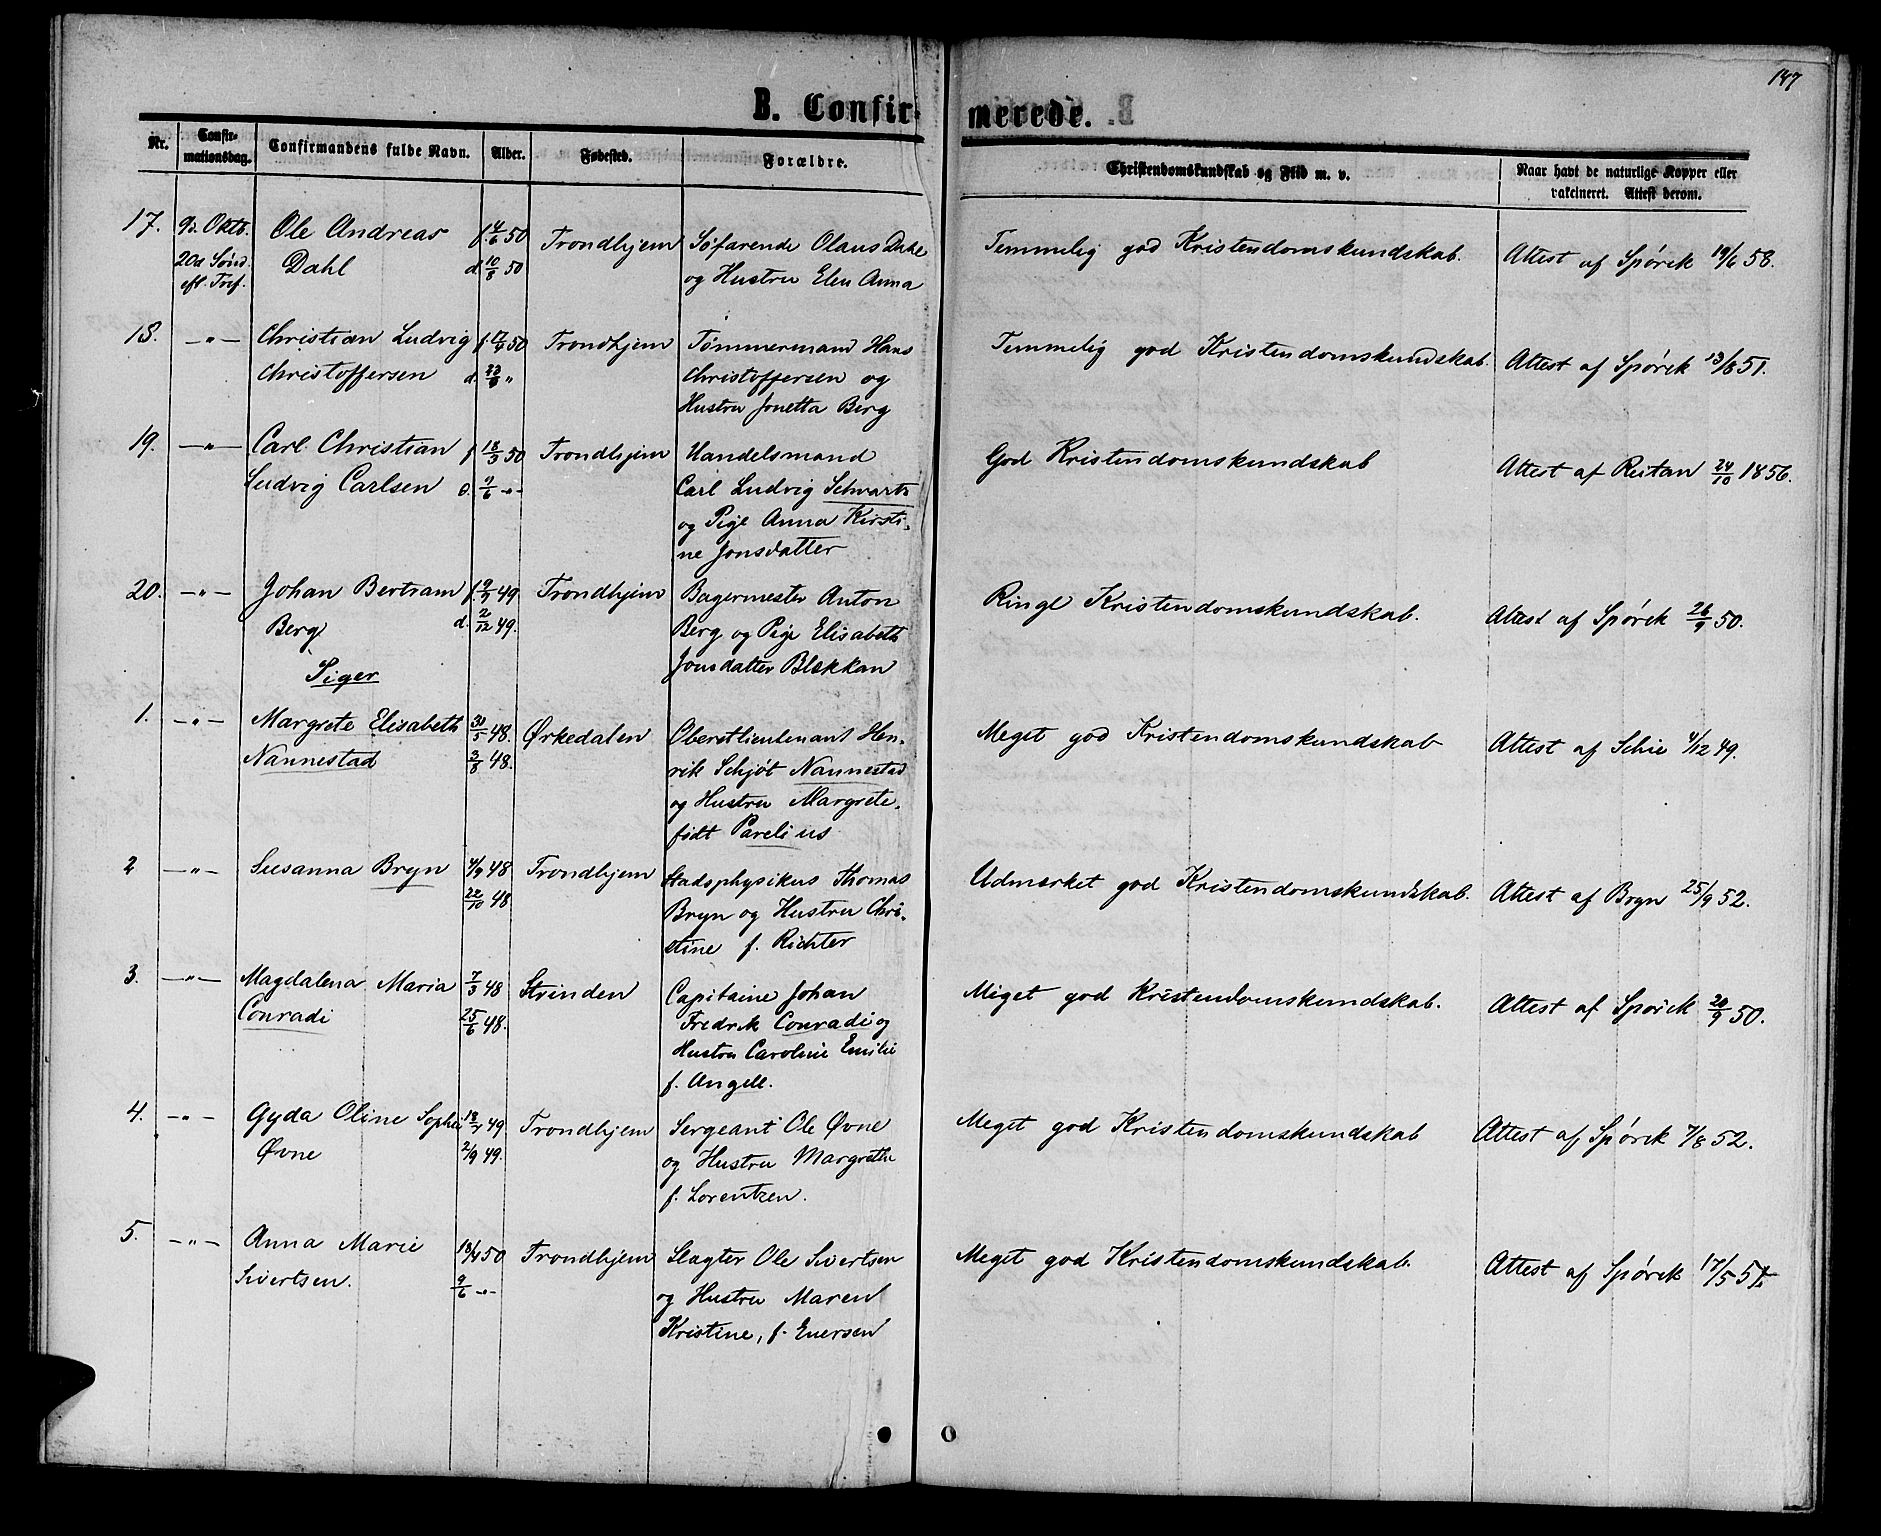 147
B. Confir- merede.
Nr. Confirmationsdag. Confirmandens fulde Navn. Alder. Fødested. Forældre. Christendomskundskab og Flid m. v. Naar havt de naturlige Kopper eller vakcineret. Attest derom.
17. Okto. 20d Sønd. eft. Tref. Ole Andreas Dahl f. 4/6 50 d. 10/8 50 Trondhjem Søfarende Olaus Dahl og Hustru Elen Anna Temmelig god Kristendomskundskab. Attest af Spørck 19/6 58.
18. —"— Christian Ludvig Christoffersen Trondhjem Tømmermand Hans Christoffersen og Hustru Jonetta Berg Temmelig god Kristendomskundskab. Attest af Spørck 13/8 51.
19. —"— Carl Christian Ludvig Carlsen f. 18/3 50 d. 9/6 -"- Trondhjem Handelsmand Carl Ludvig Schwartz og Pige Anna Kirstine Jonsdatter God Kristendomskundskab Attest af Reitan 24/10 1856.
20. —"— Johan Bertram Berg f. 9/9 49 d. 2/12 49. Trondhjem Bagermester Anton Berg og Pige Elisabeth Jonsdatter Blekkan Ringe Kristendomskundskab. Attest af Spørck 26/9 50.
Piger
1. —"— Margrete Elisabeth Nannestad 30/5 48. 3/8 48. Ørkedalen Oberstlieutenant Henrik Schjøt Nannestad og Hustru Margrete, født Parelius Meget god Kristendomskundskab Attest af Schie 4/12 49.
2 —"— Susanna Bryn 4/9 48 22/10 48 Trondhjem Stadsphysikus Thomas Bryn og Hustru Christine f. Richter Udmærket god Kristendomskundskab. Attest af Bryn 25/9 52.
3. —"— Magdalena Maria Conradi 7/3 48 25/6 48. Strinden Capitaine Johan Fredrik Conradi og Hustru Caroline Emilie f. Angell. Meget god Kristendomskundskab. Attest af Spørck 26/9 50.
4. —"— Gyda Oline Sophie Øvne 2/9 49. Trondhjem Sergeant Ole Øvne og Hustru Margrethe f. Lorentzen. Meget god Kristendomskundskab Attest af Spørck 7/8 52.
5. —"— Anna Marie Sivertsen. 18/4 50 9/6 -"- Trondhjem Slagter Ole Sivertsen og Hustru Maren Kristine, f. Eversen Meget god Kristendomskundskab. Attest af Spørck 17/5